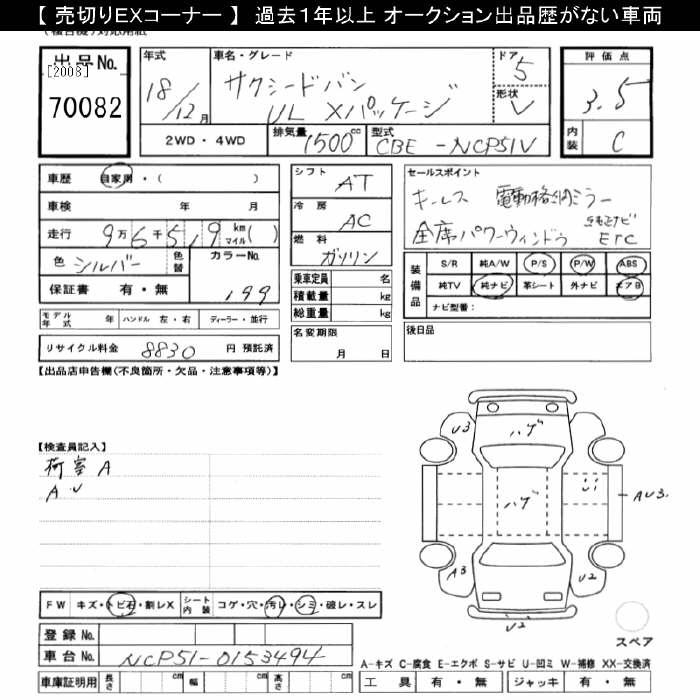 【 売切りEXコーナー 】 過去１年以上 オークション出品歴がない車両
出品No. [2008] 70082
年式 18/12月
車名・グレード サクシードバン UL Xパッケージ
ドア 5
形状 V
2WD・4WD 排気量 1500cc 型式 CBE-NCP51V
評価点 3.5
内装 C
車歴 自家用・( )
車検 年 月
走行 9万6千5,9 km マイル( )
色 シルバー 色替 カラーNo. 199
保証書 有・無
モデル年式 年 ハンドル 左・右 ディーラー・並行
リサイクル料金 8830 円 預託済
シフト AT
冷房 AC
燃料 ガソリン
乗車定員 名
積載量 kg
総重量 kg
名変期限 月 日
セールスポイント
キーレス 電動格納ミラー
全席パワーウィンドウ 純正ナビ ETC
装備品 S/R 純A/W P/S P/W ABS
純TV 純ナビ 革シート 外ナビ エアB
ナビ型番：
後日品
【出品店申告欄(不良箇所・欠品・注意事項等)】
【検査員記入】
荷室A
AU
U3 ハゲ
ハゲ U1 AU3.
A3 U2
U2
FW キズ・トビ石・割レX シート内装 コゲ・穴・汚レ・シミ・破レ・スレ
登録No.
車台No. NCP51-0153494
スペア
A-キズ C-腐食 E-エクボ S-サビ U-凹ミ W-補修 XX-交換済
車庫証明用 長さ cm 幅 cm 高さ cm 工具 有・無 ジャッキ 有・無